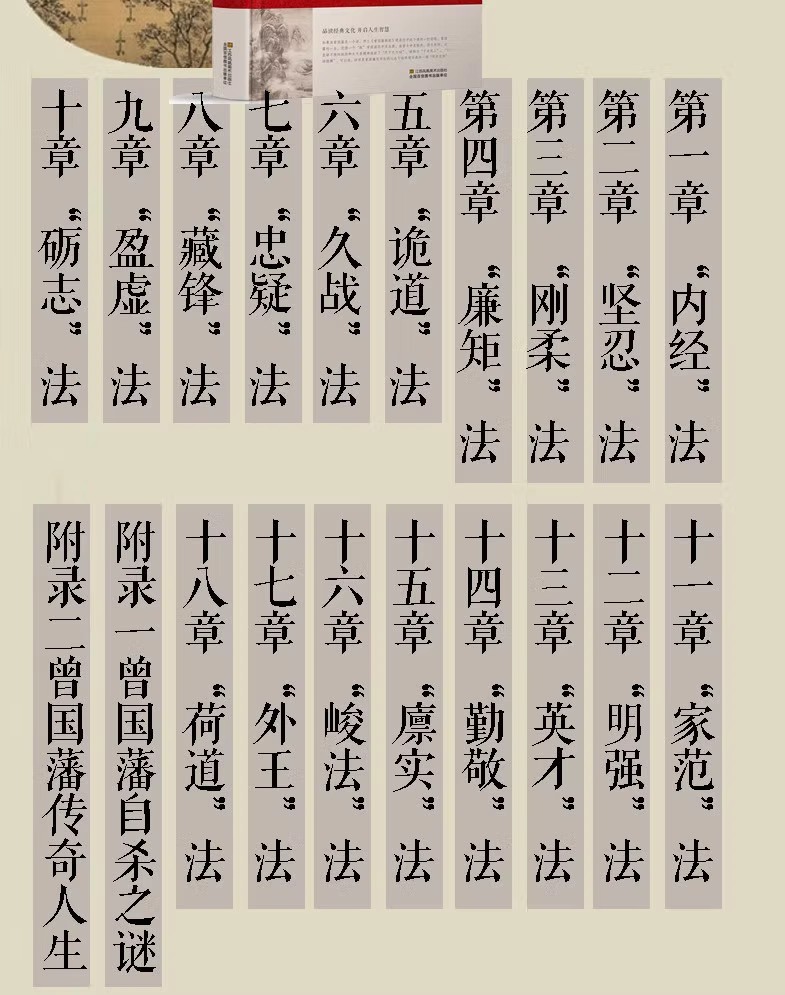 品读经典文化 开启人生智慧
第一章 “内经”法
第二章 “坚忍”法
第三章 “刚柔”法
第四章 “廉矩”法
五章 “诡道”法
六章 “久战”法
七章 “忠疑”法
八章 “藏锋”法
九章 “盈虚”法
十章 “砺志”法
十一章 “家范”法
十二章 “明强”法
十三章 “英才”法
十四章 “勤敬”法
十五章 “廪实”法
十六章 “峻法”法
十七章 “外王”法
十八章 “荷道”法
附录一曾国藩自杀之谜
附录二曾国藩传奇人生